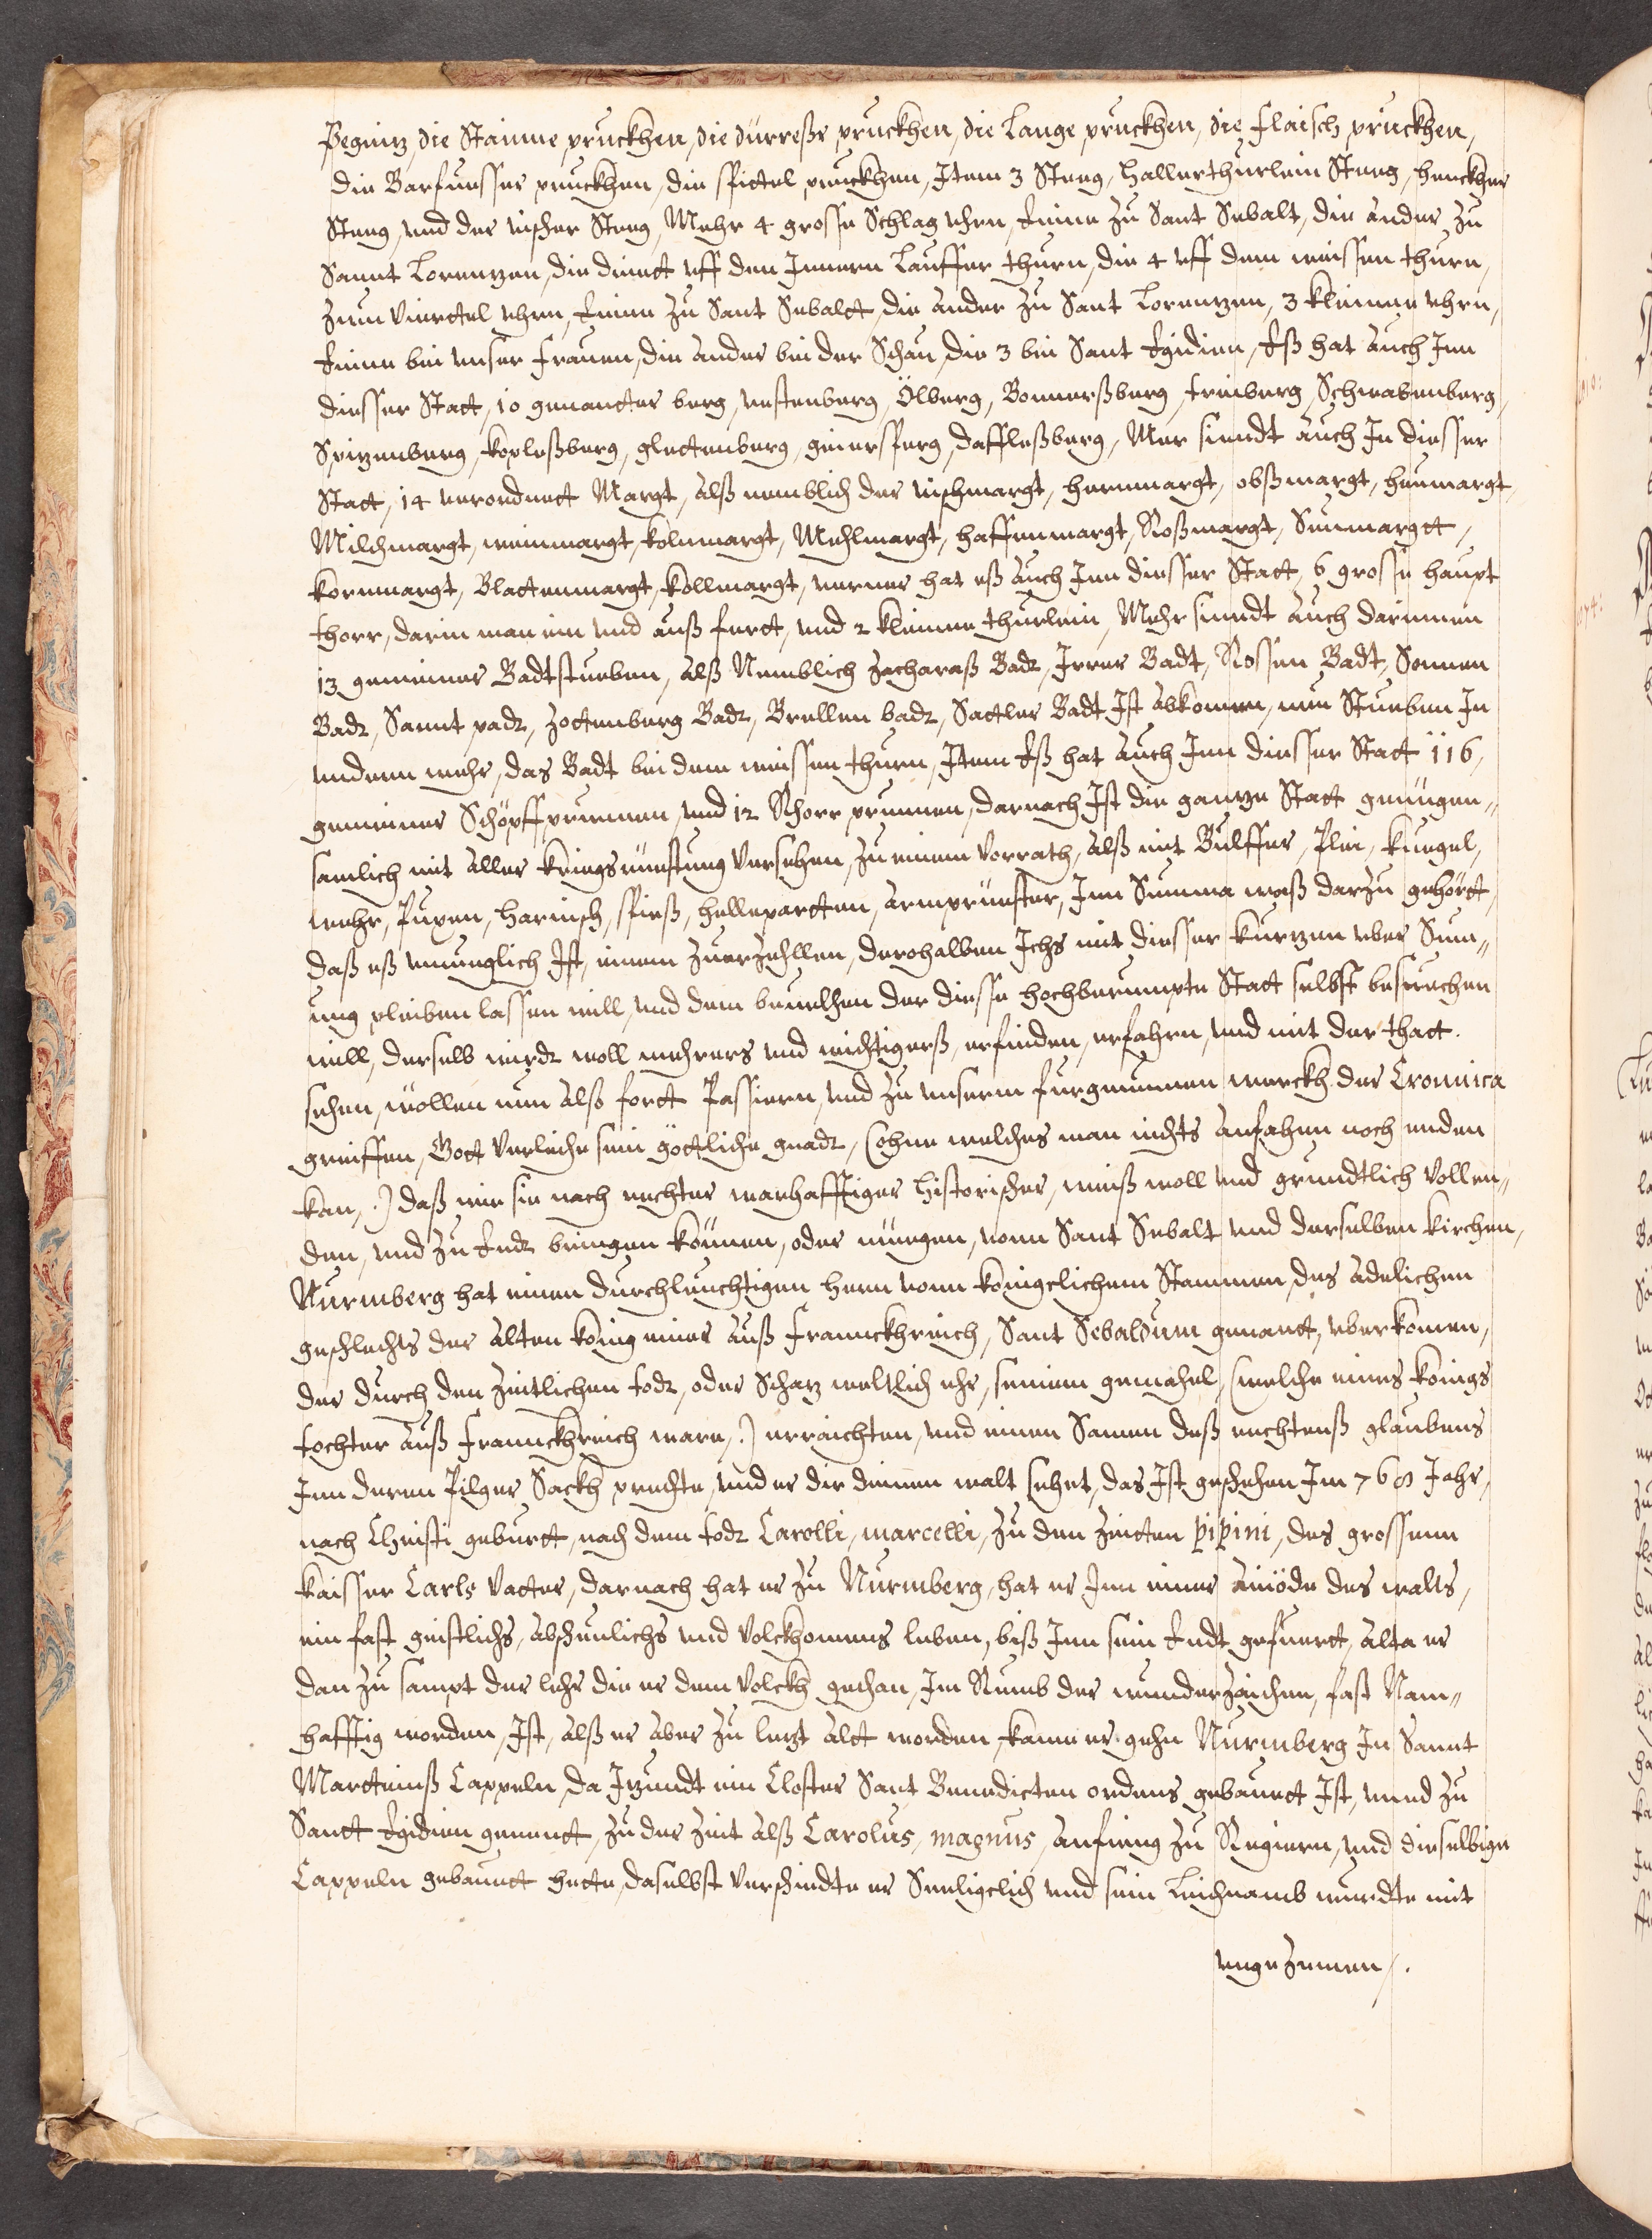 Pegnitz, die Stainne pruckhen, die dürresse pruckhen, die Lange pruckhen, die flaisch pruckhen,
die Barfuesser pruckhen, die spittel pruckhen, Item 3 Steeg, Hallerthürlein Steeg, henckher
Steeg, und der vischer Steeg, Mehr 4 grosse Schlag uhrn, Eeine zu Sant Sebalt, die ander zu
Sannt Lorentzen, die driett uff den Innern Lauffer thurn, die 4 uff dem weissen thurn,
zwn viertel uhrn, Eeine zu Sant Sebaltt, die ander zu Sant Lorentzen, 3 kleinne uhrn,
Eeine bei unser frauen, die ander bei der Schau, die 3 bei Sant Egidien, Eß hat auch Inn
diesser Statt, 10 genantter berg, vestenberg, Ölberg, Bonnerßberg, treiberg, Schwabenberg,
Spitzenberg, kopleßberg, glettenberg, geiersperg, daffleßberg, Mer siendt auch In diesser
Statt, 14 verordnett Margt, alß nemblich der vischmargt, hernmargt, obßmargt, heumargt,
Milchmargt, weinmargt, kolnmargt, Mehlmargt, haffenmargt, Roßmargt, Seumargtt,
kornmargt, Blattenmargt, kollmargt, verner hat eß auch Inn diesser Statt, 6 grosse haupt
thorr, darin man ein und auß fertt, und 2 kleinne thürlein, Mehr siendt auch darinnen
13 gemeiner Badtstueben, alß Nemblich Zacharaß Badt, Irrer Badt, Rossen Badt, Sonnen
Badt, Sannt padt, Zottenberg Badt, Brellen badt, Sattler Badt Ist abkomen, neu Stueben In
undern wehr, das Badt bei dem weissen thurn, Item Eß hat auch Inn diesser Statt 116,
gemeiner Schöpffprunnen, und 12 Rhorr prunnen, darnach Ist die gantze Statt genuegen„
samlich mit aller kriegsruestung versehen, zu einem vorrath, alß mit Bulffer, Plei, kuegel,
wehr, Puxen, harnisch, spieß, helleparttten, armprüester, Inn Summa waß darzu gehörtt,
daß eß unmuglich Ist, einem zuerzehllen, derohalben Ichs mit diesser kurtzen uber Sum„
ung pleiben lassen will, und dem bevelhen der diesse hochberumpte Statt selbst besuechen
will, derselb wirdt woll mehrers und wichtigerß, erfinden, erfahrn, und mit der thatt.
sehen, wöllen nun also fortt Passiern, und zu unserm furgenumen werckh der Cronnica
greiffen, Gott verleihe sein göttliche gnadt, (ohne welches man nichts anfahen noch enden
kan,.) daß wir sie nach rechter warhafftiger historischer, weiß woll und grundtlich vollen„
den, und zu Endt bringen können, oder mügen, vonn Sant Sebalt und derselben kirchen,
Nurmberg hat einen durchleuchtigen hern vonn königelichem Stammen, des adelichen
geschlechts der alten könig einer auß Franckhreich, Sant Sebaldum genantt, uberkomen,
der durch den zeittlichen todt, oder Schatz weltlich ehr, seinem gemahel, (welche eines königs
tochter auß Franckhreich ware,.) erraichten, und einen Samen deß rechtenß glaubens
Inn deren Pilger Sackh prachte, und er die deinen walt sehet, das Ist geschehen Im 760 Jahr,
nach Christi geburtt, nach dem todt Carolli, marcelli, zu den zeitten pipini, des grossenn
kaisser Carls vatter, darnach hat er zu Nurmberg, hat er Inn einer ainöde des walts,
ein fast geistlichs, abscheulichs und volckhomens leben, biß Inn sein Endt gefuertt, alta er
dan zu sampt der lehr die er dem volckh gethan, Im Rumb der wunderzaichen, fast Nam„
hafftig worden, Ist, alß er aber zu letzt alt worden, kame er gehn Nurmberg In Sannt
Marttinß Cappeln, da Itzundt ein Closter Sant Benedicten ordens gebauett Ist, unnd zu
Santt Egidien genentt, zu der zeit alß Carolus, magnus, anfieng zu Regiern, und dieselbige
Cappeln gebauett hette, daselbst verschiedte er Seeligelich und sein Leichnamb wurdte mit
ungezemen /.